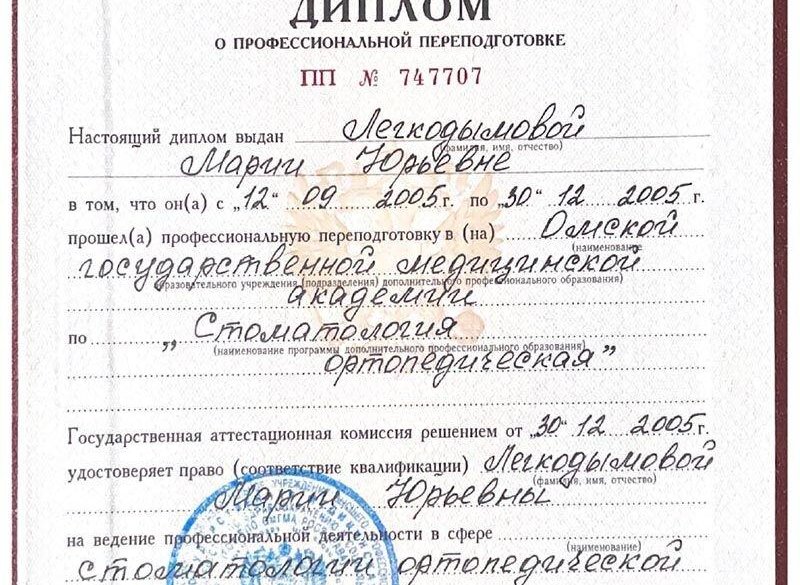 ДИПЛОМ
О ПРОФЕССИОНАЛЬНОЙ ПЕРЕПОДГОТОВКЕ
ПП № 747707
Настоящий диплом выдан Легкодымовой
(фамилия, имя, отчество)
Марии Юрьевне
в том, что он(а) с „12“ 09 2005 г. по „30“ 12 2005 г.
прошел(а) профессиональную переподготовку в (на) Омской
(наименование
государственной медицинской
образовательного учреждения (подразделения) дополнительного профессионального образования)
академии
по „Стоматология
(наименование программы дополнительного профессионального образования)
ортопедическая”
Государственная аттестационная комиссия решением от „30“ 12 2005 г.
удостоверяет право (соответствие квалификации) Легкодымовой
(фамилия, имя, отчество)
Марии Юрьевны
на ведение профессиональной деятельности в сфере
(наименование)
стоматологии ортопедической